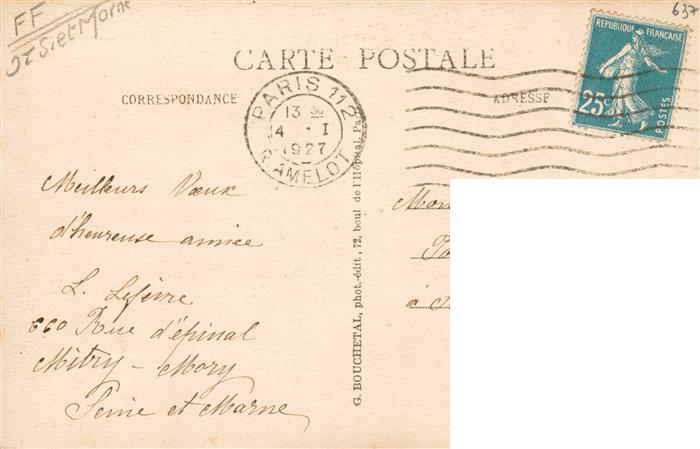 FF
Set Marne
637
CARTE POSTALE
CORRESPONDANCE
ADRESSE
REPUBLIQUE FRANÇAISE
25c
POSTES
PARIS 112
13 30
4 - I
1927
R. AMELOT
Meilleurs Vœux
d'heureuse année
L. Lefèvre
660 Rue d'épinal
Mitry - Mory
Seine et Marne
G. BOUCHETAL, phot.-édit., 72, boul de l'Hôpital, Pa
Mon
à